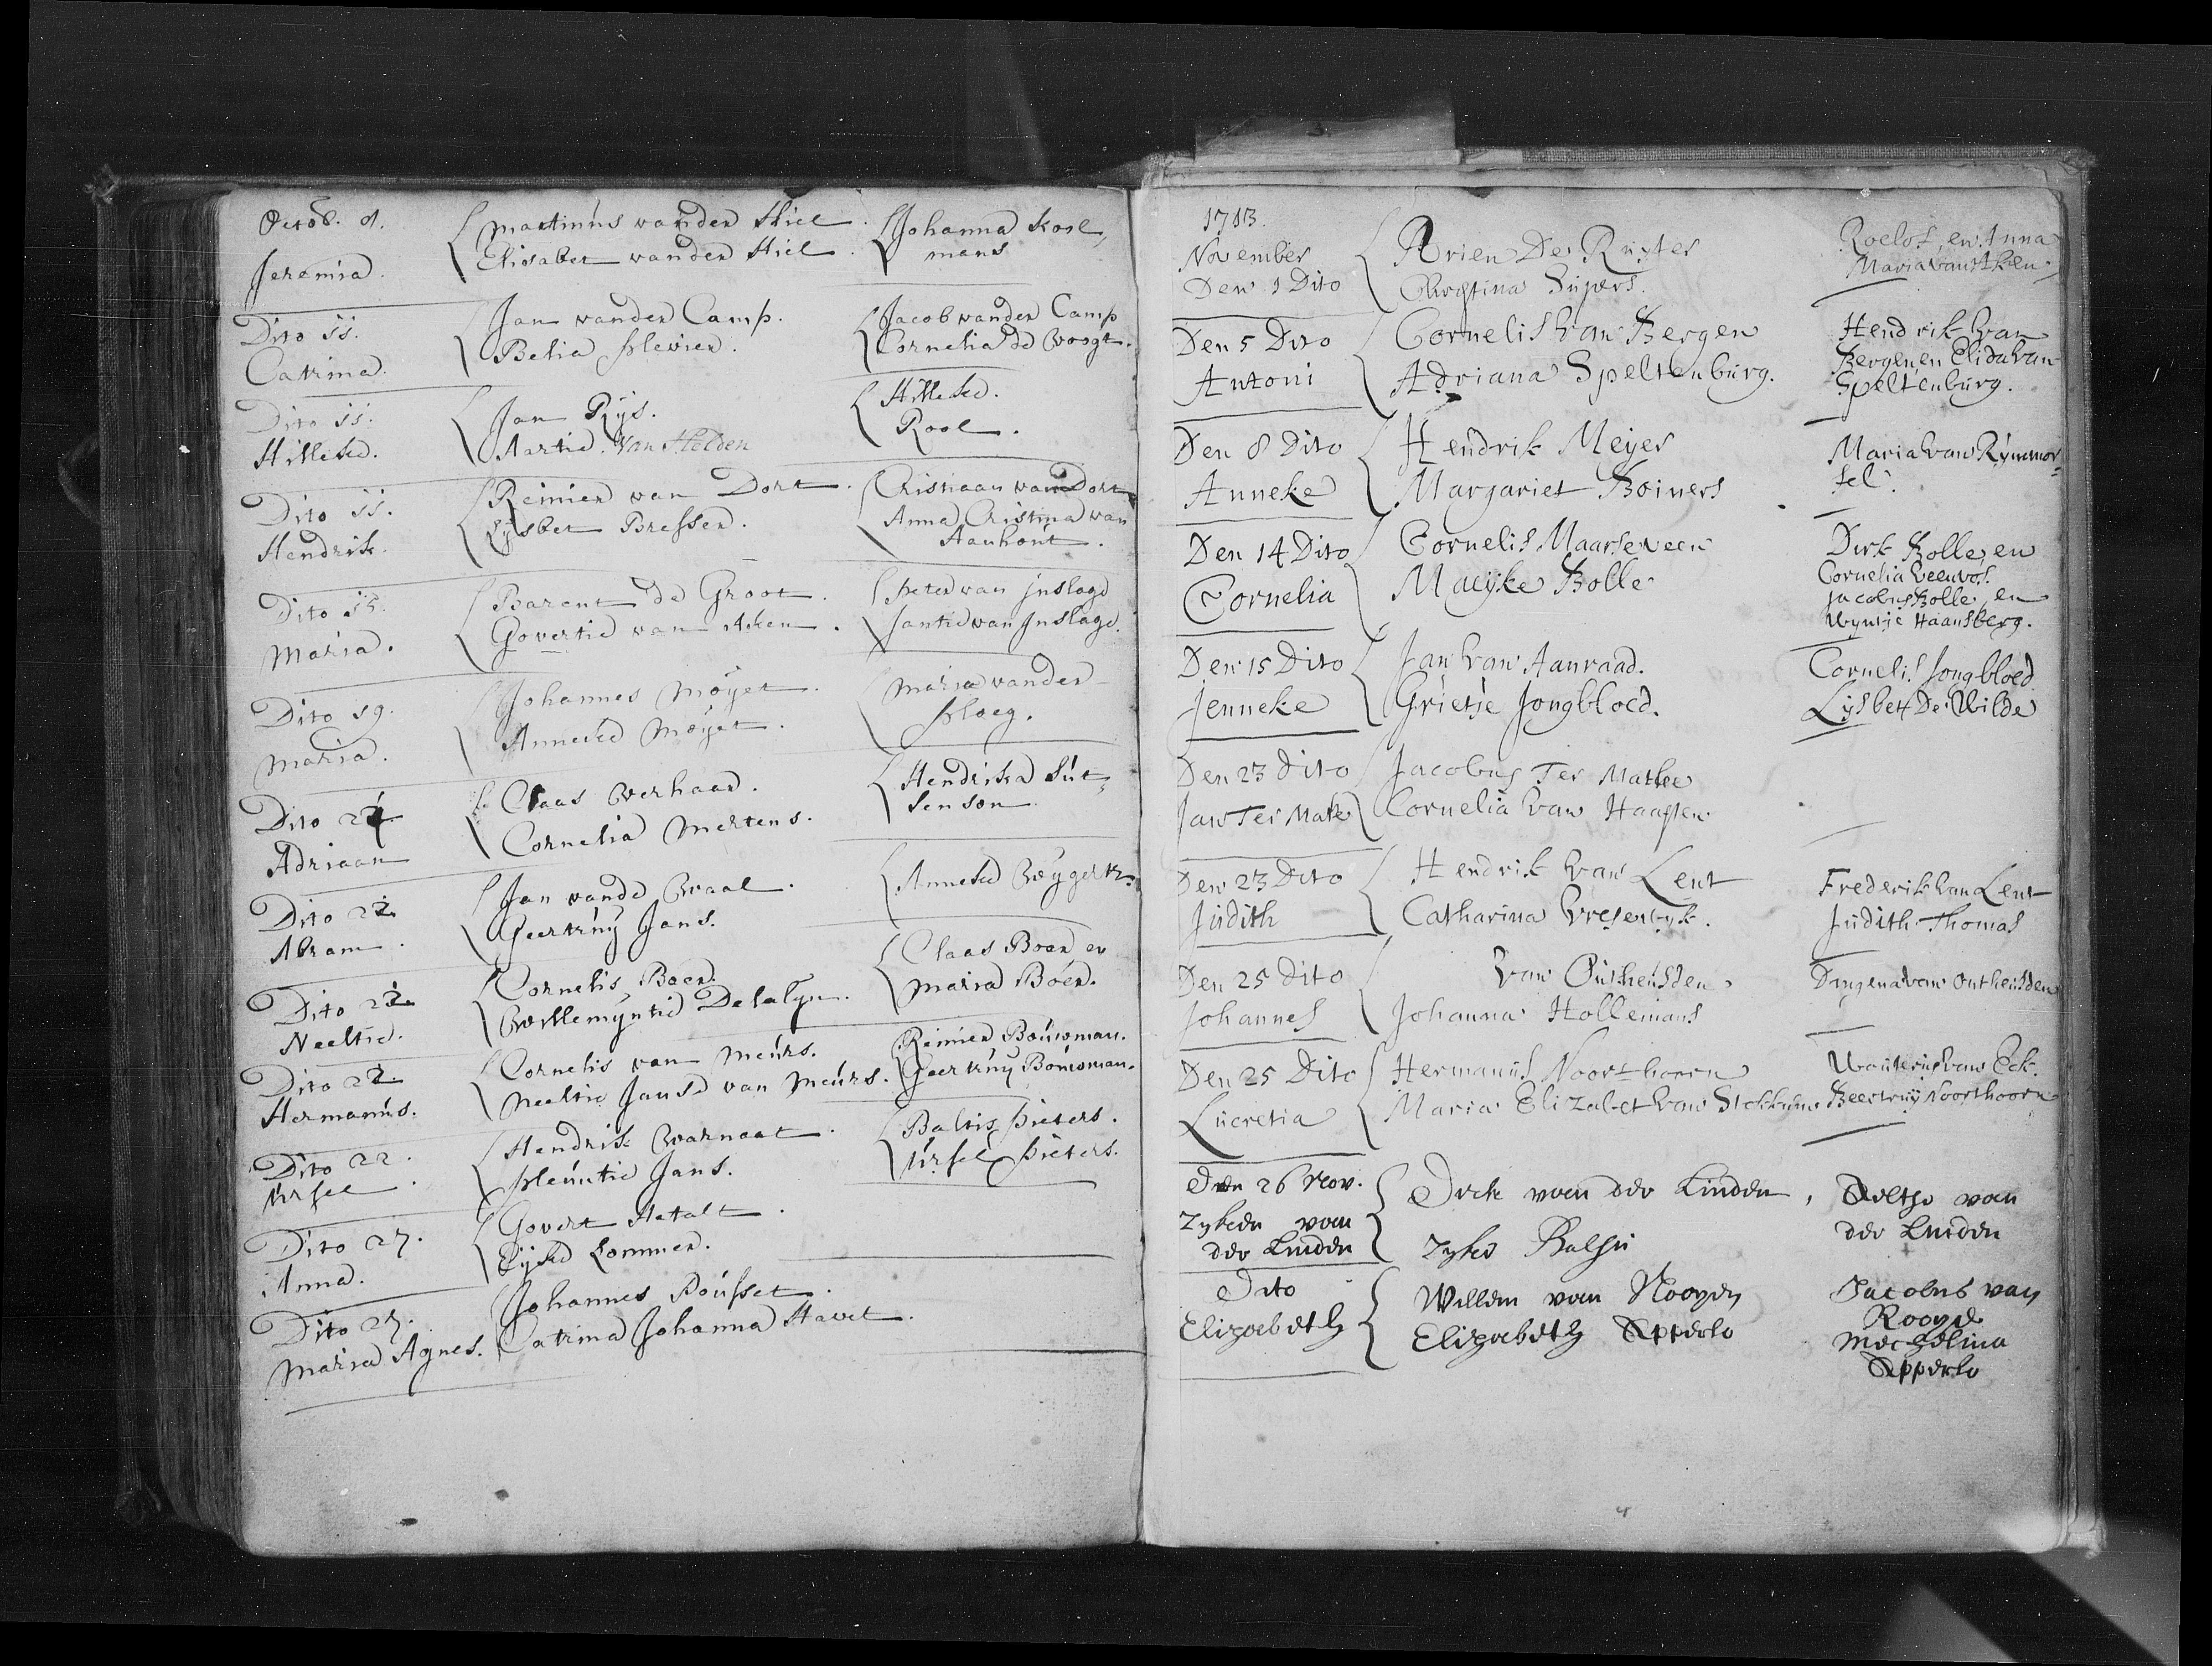 Octob. 8.
Jeremia.
Martinus vander Hiel
Elisabet vander Hiel
Johanna Kosel,
mans
Dito 11.
Catrina.
Jan vander Camp.
Belia Plevier.
Jacob vander Camp
Cornelia de Voogt.
Dito 11.
Hilleke.
Jan Rijs.
Aartie. Van Helden
Hilleke.
Rool.
Dito 11.
Hendrik.
Reinier van Dort.
Lijsbet Bresser.
Cristiaan van Dort
Anna Cristina van
Aanhout.
Dito 15.
Maria.
Barent de Groot.
Govertie van Aken.
Peter van Inslage
Jantie van Inslage.
Dito 19.
Maria.
Johannes Moyet.
Anneke Moyet.
Maria vander
Ploeg.
Dito 22
Adriaan
Claas Verhaar.
Cornelia Mertens.
Hendrika
Dito 22
Abram.
Jan vande Waal.
Geertruy Jans.
Anneke
Dito 22
Neeltie.
Cornelis Boer.
Willemyntie
Claas Boer en
Maria Boer.
Dito 22
Hermanus.
Cornelis van Meurs.
Neeltie Janse van Meurs.
Reinier Bouwman.
Geertruy Bouwman.
Dito 22.
Ursel.
Hendrik Warnaat.
Pleuntie Jans.
Baltis Pieters.
Ursel Pieters.
Dito 27.
Anna.
Govert Hatalt.
Eijke Lommer.
Dito 27.
Maria Agnes.
Johannes Pousset.
Catrina Johanna Havet.
1713.
November
Den 1 Dito
Arien De Ruyter
Chrystina Suyers.
Roelof, en Anna
Maria van Aken.
Den 5 Dito
Antoni
Cornelis Van Bergen
Adriana Speltenburg.
Hendrik Van
Bergen, en Elida Van
Speltenburg.
Den 8 Dito
Anneke
Hendrik Meyer
Margariet Boiners
Maria Van Rymmor-
sel.
Den 14 Dito
Cornelia
Cornelis Maarseveen
Maeyke Bolle
Dirk Bolle, en
Cornelia Veenvos.
Jacobus Bolle, en
Wyntje Haansberg.
Den 15 Dito
Jenneke
Jan Van Aanraad.
Grietje Jongbloed.
Cornelis Jongbloed
Lijsbett De Wilde
Den 23 Dito
Jan Ter Mathe
Jacobus Ter Mathe
Cornelia Van Haaften
Den 23 Dito
Judith
Hendrik Van Lent
Catharina Vreeswyk.
Frederik Van Lent
Judith Thomas
Den 25 Dito
Johannes
Van Outheusden
Johanna Hollemans
Dingena van Outheusden
Den 25 Dito
Lucretia
Hermanus Noorthoorn
Maria Elizabet Van Stokkum
Wouterus Van Eck.
Geertruy Noorthoorn
Den 26 Nov.
Zyken van
der Linden
Dirk van der Linden,
Zyke
Aeltje van
der Linden
Dito
Elizabeth
Willem van Rooyen
Elizabeth Apperlo
Jacobus van
Rooye
Mechelina
Apperlo